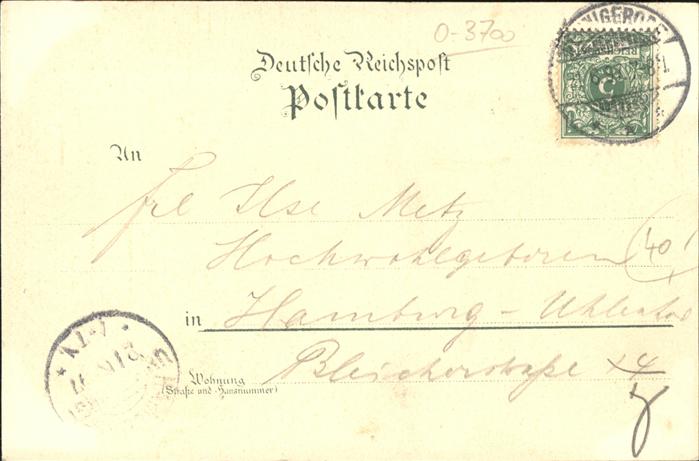 0-3700
NIGERODE
Deutsche Reichspost
Postkarte
An
Frl Ilse Metz
Hochwohlgeboren
(40)
in Hamburg-Uhlenhorst
Wohnung
(Straße und Hausnummer)
Bleicherstraße